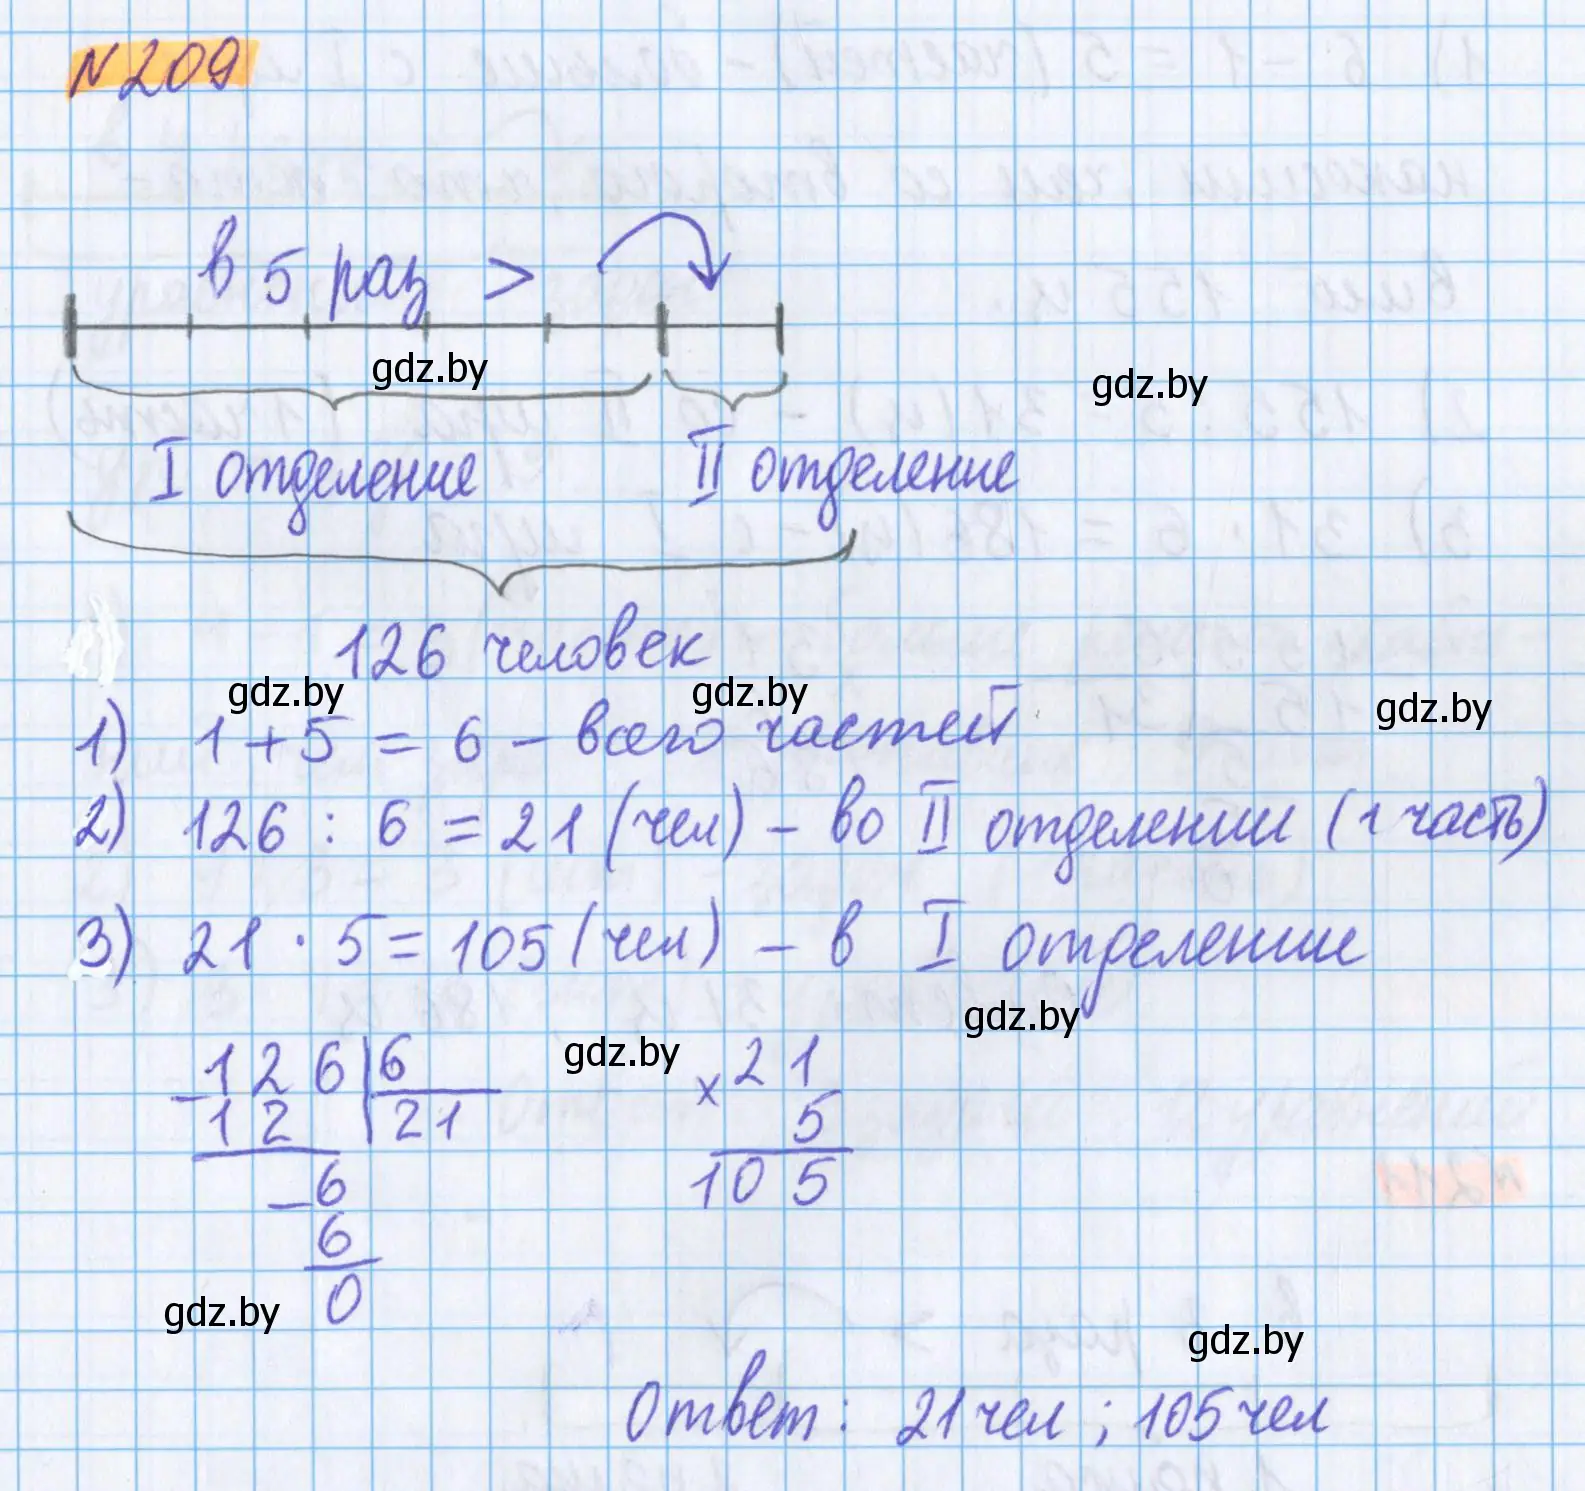 N209
в 5 раз >
gdz.by
gdz.by
I отделение II отделение
126 человек
gdz.by gdz.by gdz.by
1) 1 + 5 = 6 – всего частей
2) 126 : 6 = 21 (чел) – во II отделении (1 часть)
3) 21 · 5 = 105 (чел) – в I отделении
gdz.by
gdz.by
– 1 2 6 | 6
1 2 | 21
– 6
6
0
× 2 1
5
10 5
gdz.by
gdz.by
Ответ: 21 чел ; 105 чел